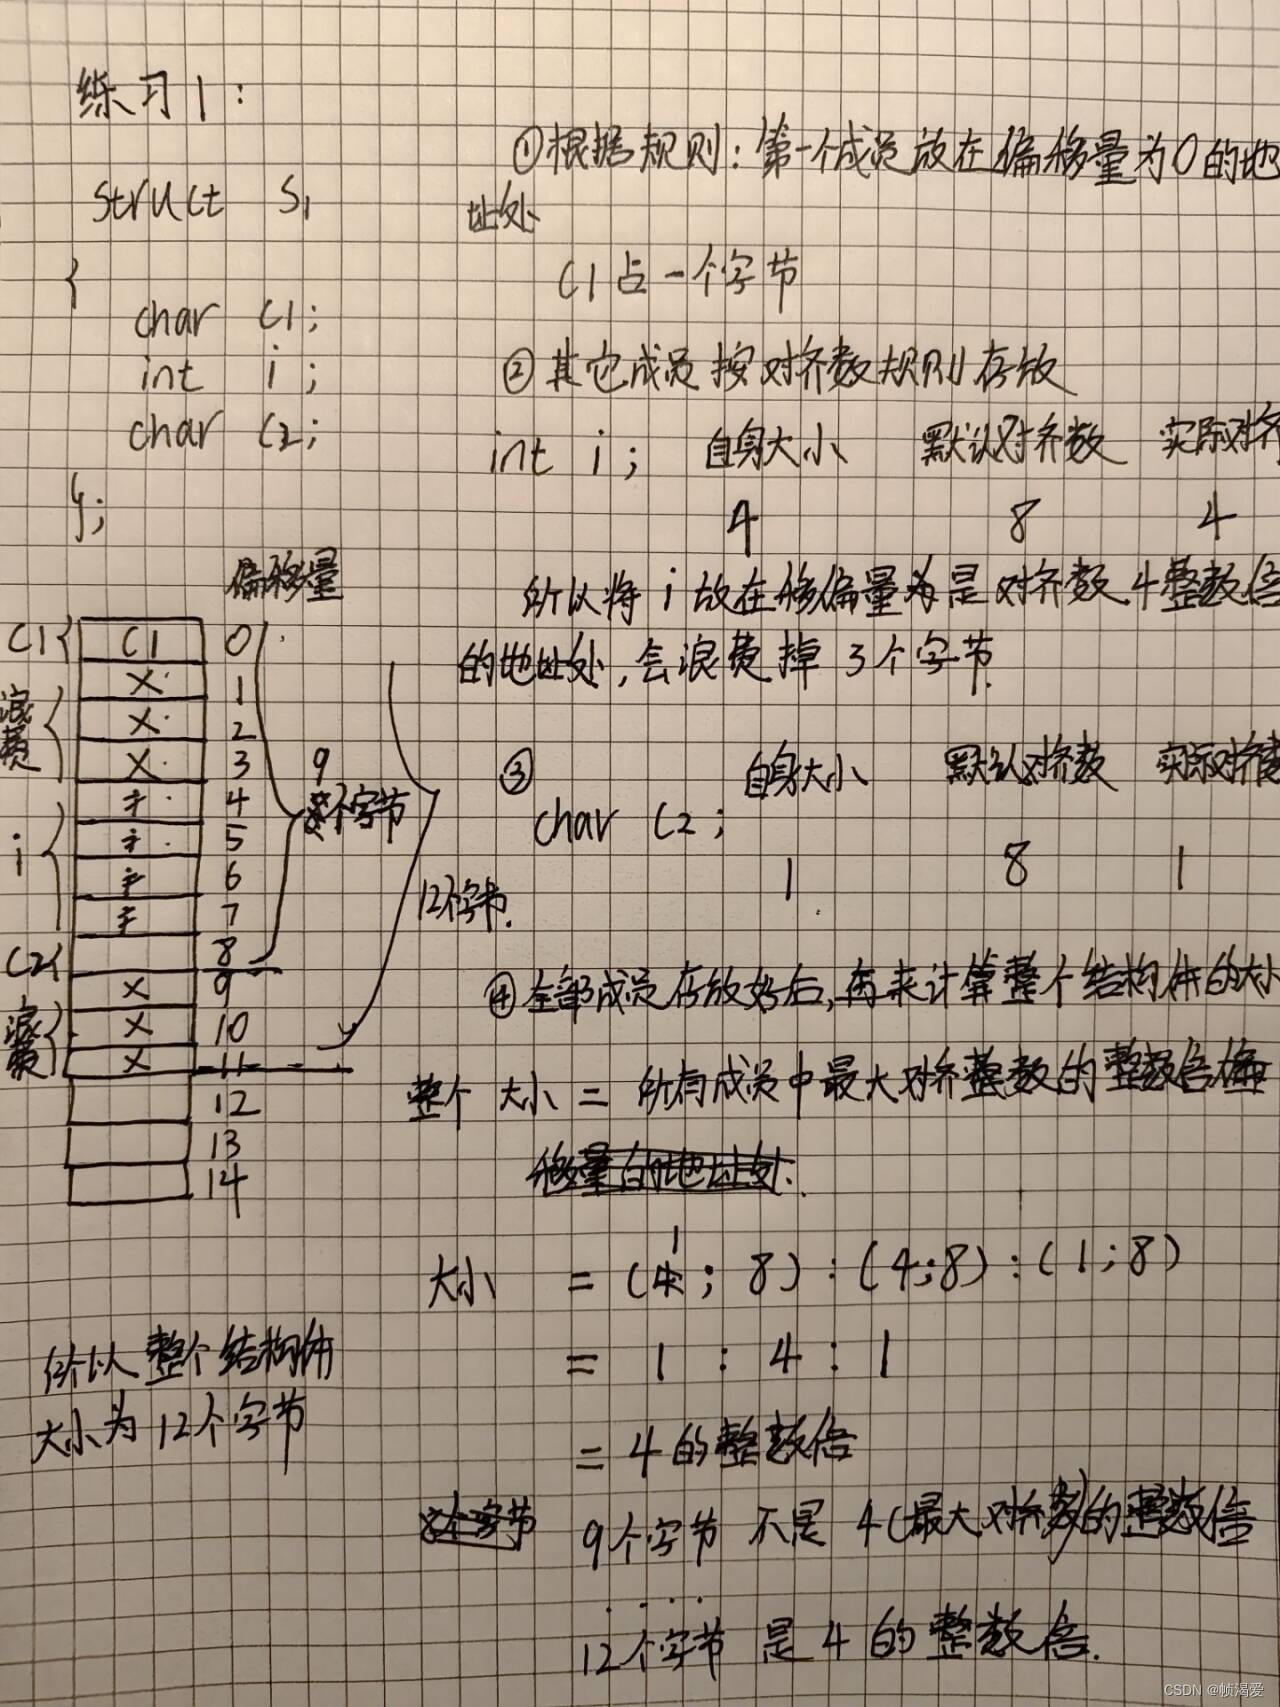 练习1:
struct S1
{
char c1;
int i;
char c2;
};
偏移量
c1{ c1 0
x 1
浪费 x 2
x 3
4
5
i 6
7
c2{ 8
x 9
浪费 x 10
x 11
12
13
14
9
个字节
12个字节.
所以整个结构体
大小为12个字节
①根据规则:第一个成员放在偏移量为0的地
址处
c1占一个字节
②其它成员按对齐数规则存放
int i; 自身大小 默认对齐数 实际对齐
4 8 4
所以将i放在移偏量为是对齐数4整数倍
的地址处,会浪费掉3个字节.
③ 自身大小 默认对齐数 实际对齐数
char c2;
1 8 1
④全部成员存放好后,再来计算整个结构体的大小
整个大小=所有成员中最大对齐整数的整数倍偏
移量的地址处.
大小 =(1; 8):(4;8):(1;8)
= 1 : 4 : 1
= 4的整数倍
个字节 9个字节不是4(最大对齐数)的整数倍
....
12个字节是4的整数倍.
CSDN @帧渴爱